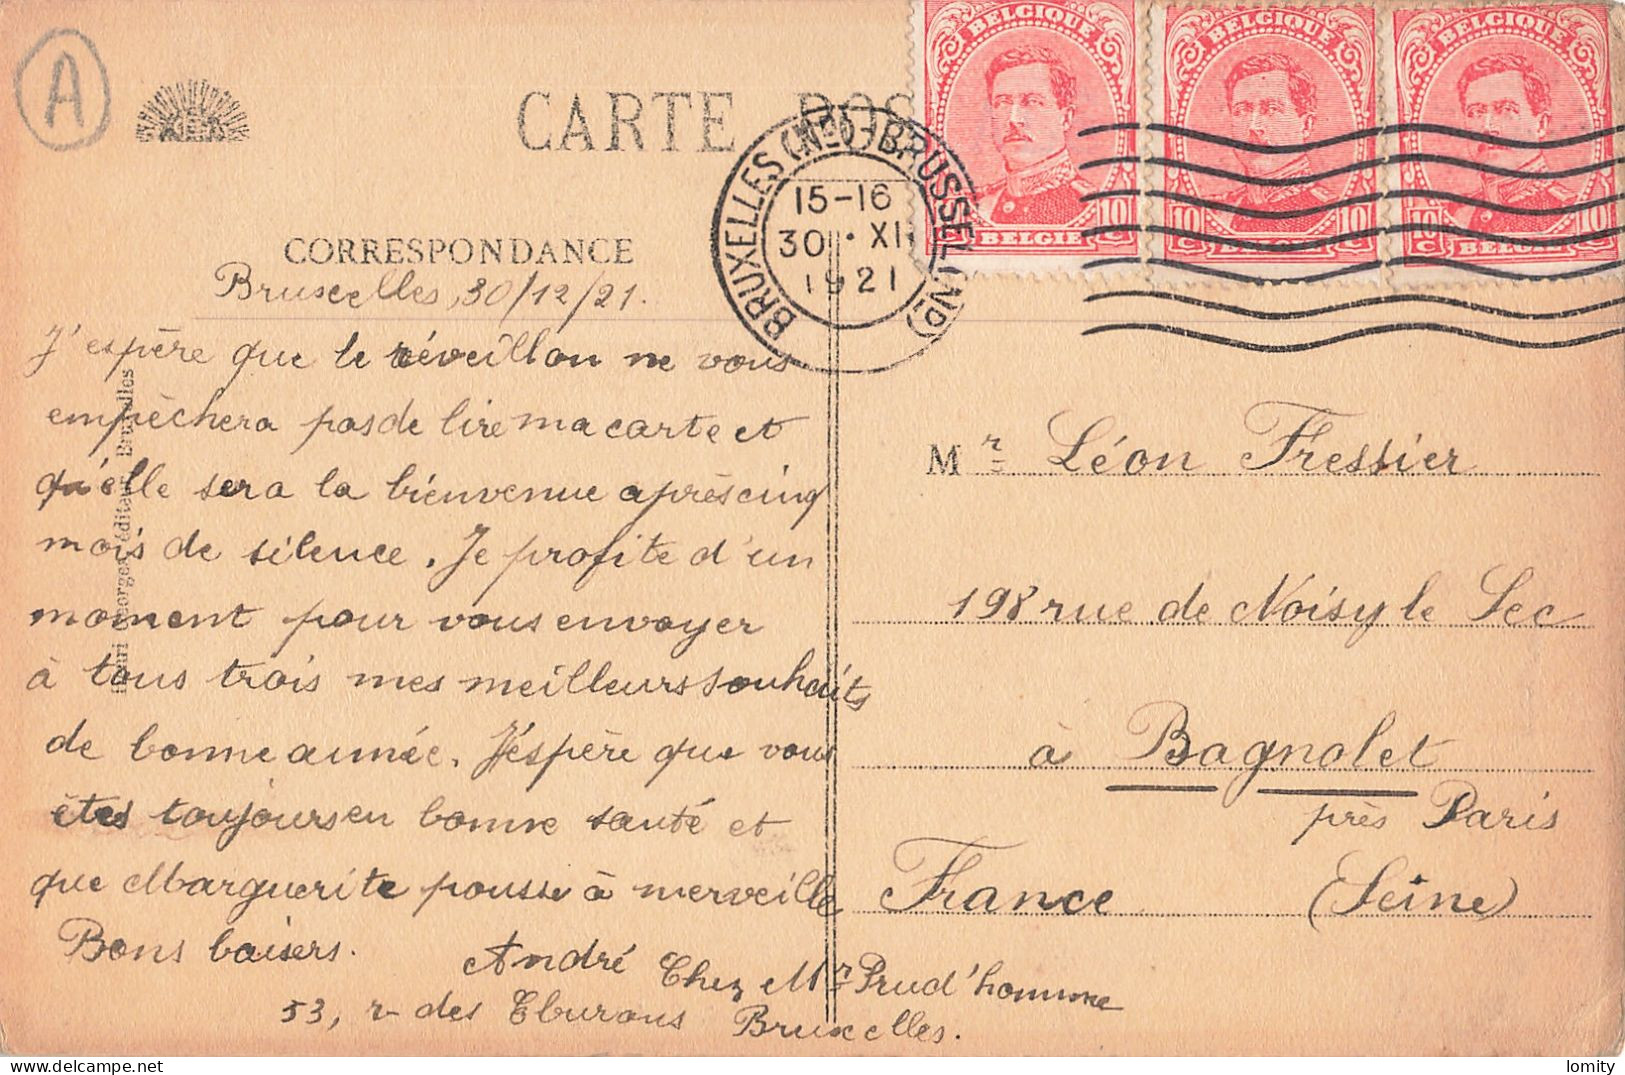 A
CARTE POS
BRUXELLES (Nd)-BRUSSEL (Nd)
15-16
30 · XI
1921
BELGIQUE
10 C BELGIE 10 C
BELGIQUE
10 C BELGIE 10 C
BELGIQUE
10 C BELGIE 10 C
CORRESPONDANCE
Bruxelles, 30/12/21.
J'espère que le réveillon ne vous
empêchera pas de lire ma carte et
qu'elle sera la bienvenue après cinq
mois de silence. Je profite d'un
moment pour vous envoyer
à tous trois mes meilleurs souhaits
de bonne année. J'éspère que vous
êtes toujours en bonne santé et
que Marguerite pousse à merveille
Bons baisers.
André Chez Mr Prud'homme
53, r. des Eburons Bruxelles.
Henri Georges, éditeur, Bruxelles
Mr Léon Fressier
198 rue de Noisy le Sec
à Bagnolet
près Paris
France (Seine)
lomity